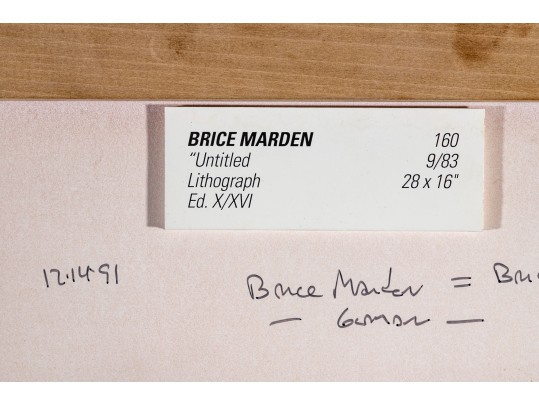 BRICE MARDEN 160
"Untitled 9/83
Lithograph 28 x 16"
Ed. X/XVI
12.14.91 Brice Marden = Bri
— German —